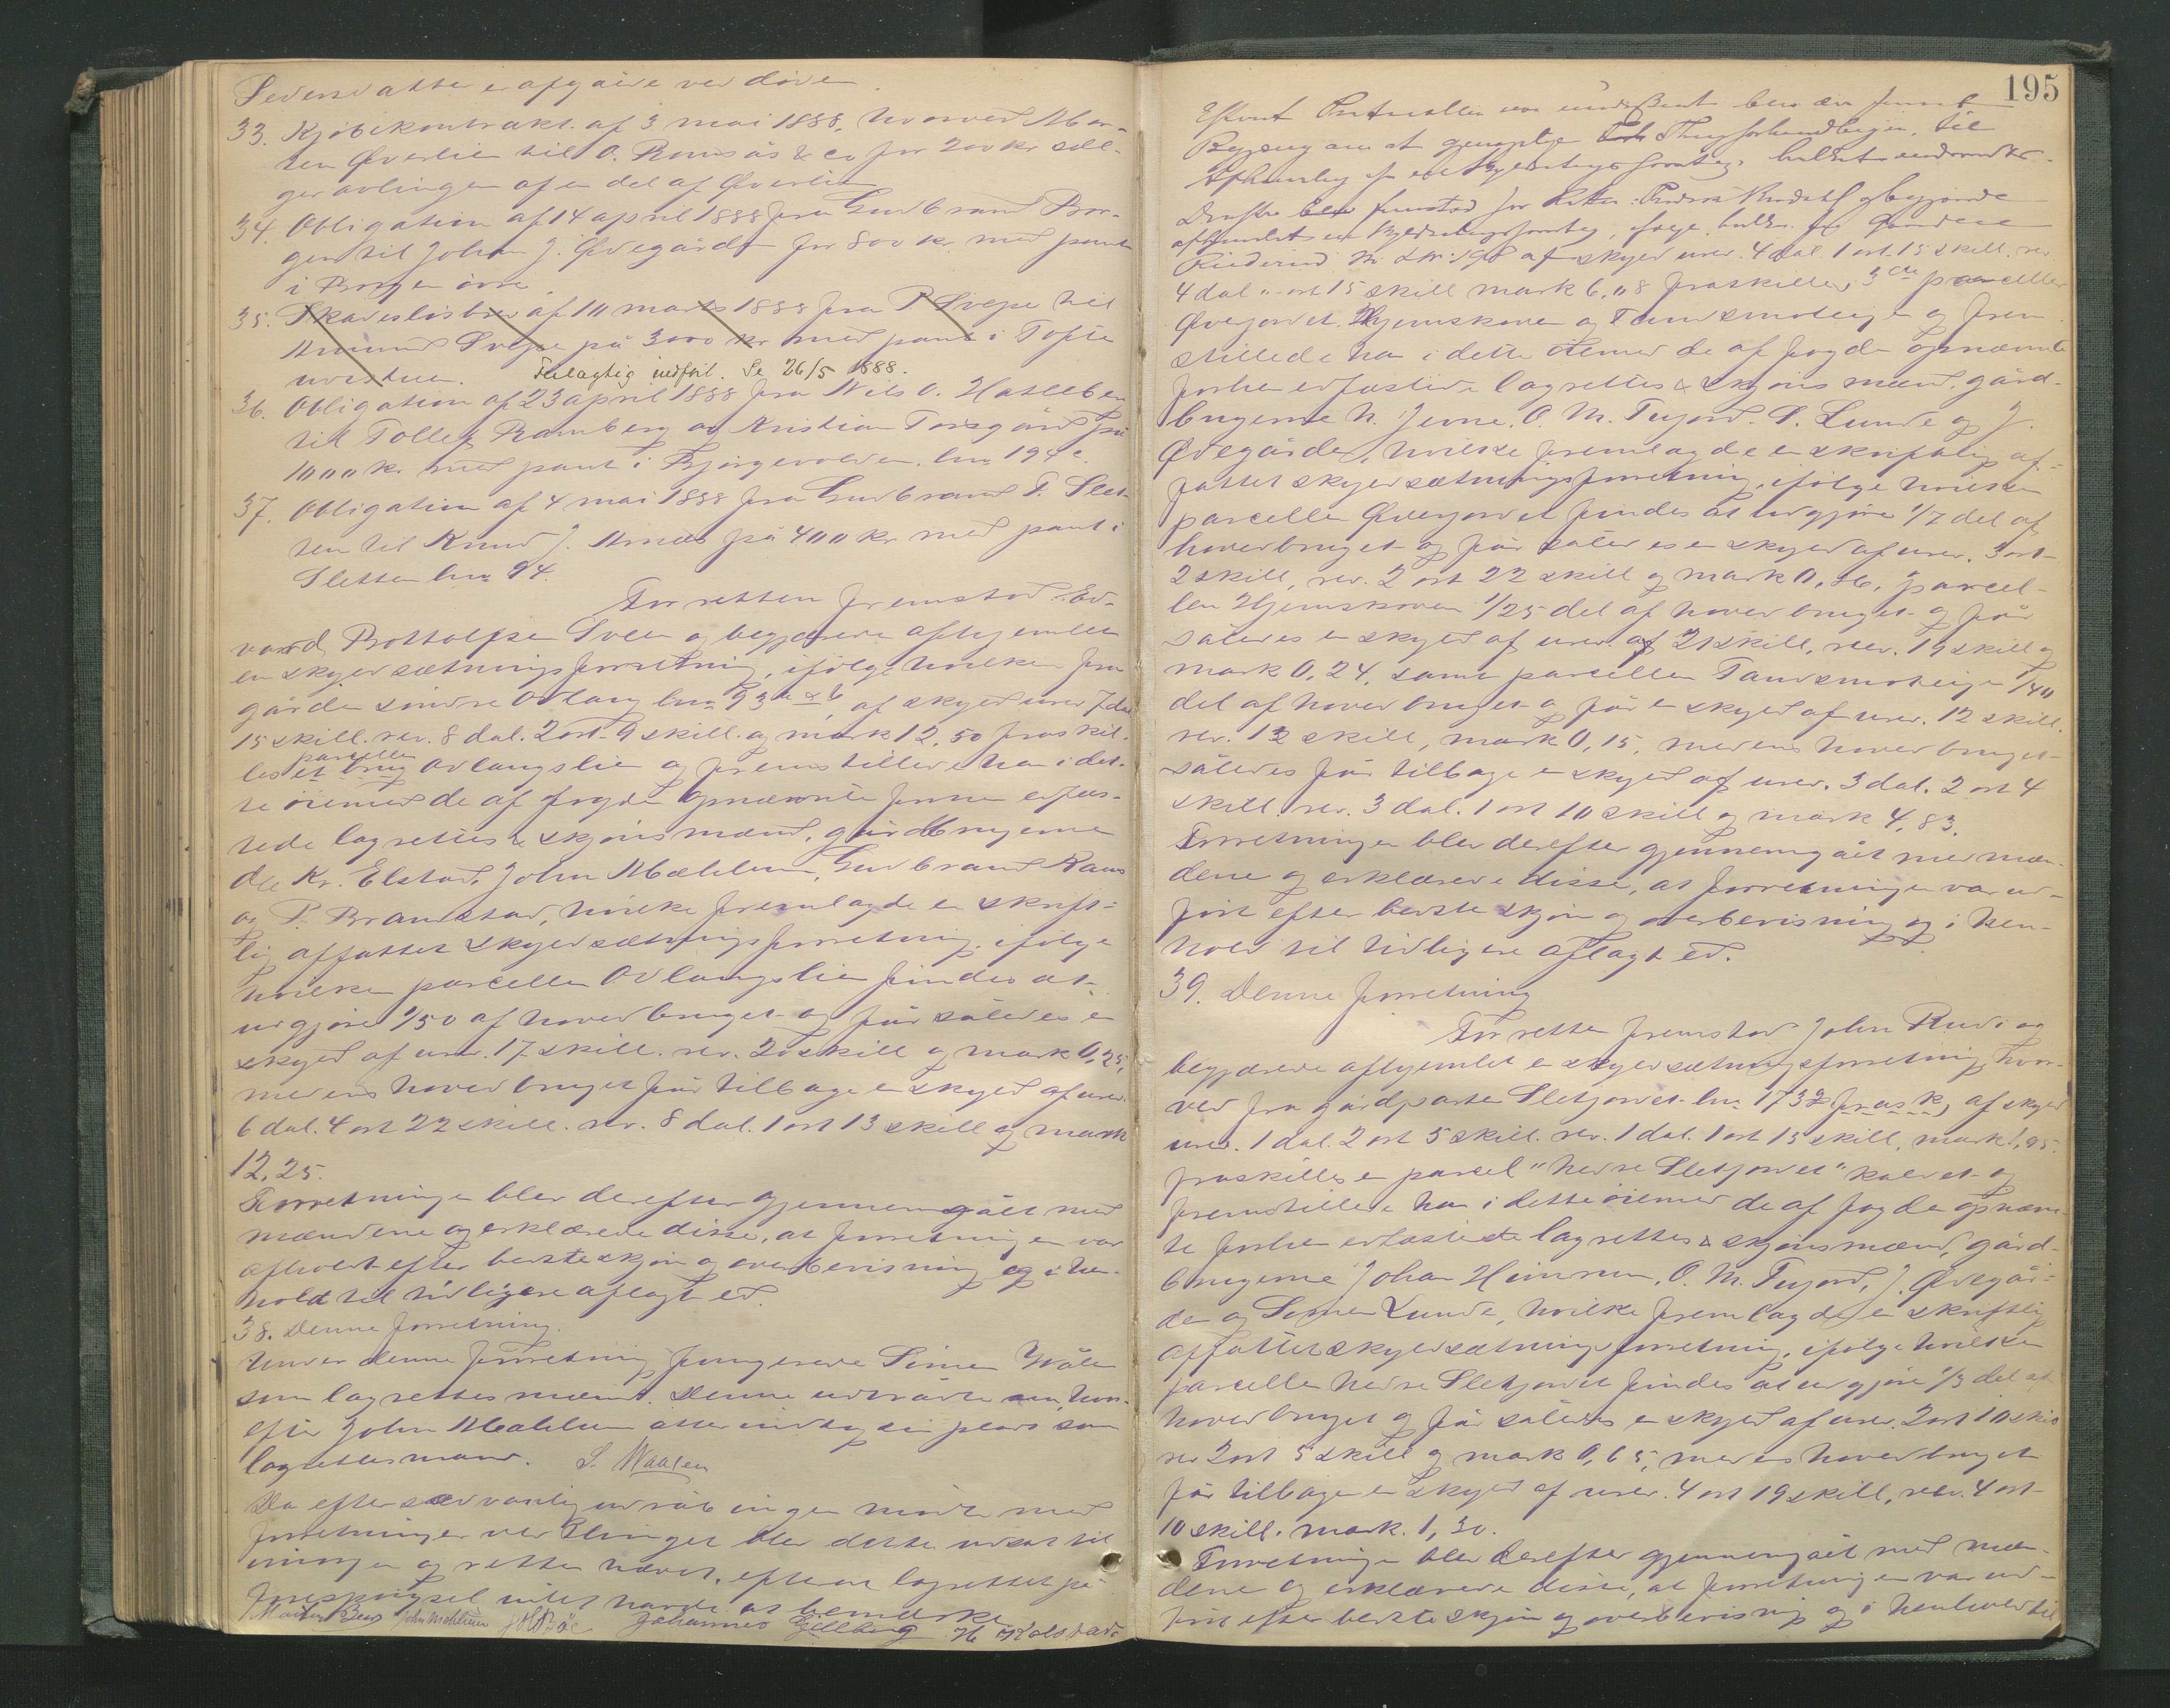 Pedersdatter er afgåede ved døden.
33. Kjøbekontrakt af 3 mai 1888, hvorved Mor-
ten Øverlien til O. Romsås & co for 200 kr. sæl-
ger avlingen af en del af Øverlien
34. Obligation af 14 april 1888 fra Gudbrand Bor-
gen til Johan J. Øvegårde for 800 kr. med pant
i Borgen øvre.
35. Skadeslösbrev af 10 marts 1888 fra P. Svepe til
Amund Svepe på 3000 kr med pant i Tofte
nordstuen. Feilagtig indført. Se 26/5 1888.
36. Obligation af 23 april 1888 fra Nils O. Hatleberg
til Tollef Ramberg og Kristian Forsgård på
1000 kr. med pant i Bjørgevolden lnr 194c.
37. Obligation af 4 mai 1888 fra Gudbrand P. Slet-
ten til Knud J. Arnæs på 400 kr. med pant i
Sletten lnr 94.
For retten fremstod Ed-
vard Bottolfsen Sveen og begjærede afhjemlet
en skyldsætningsforretning, ifølge hvilken fra
gården søndre Odlaug lnr 93 a & b, af skyld urev. 7 dal
15 skill. rev. 8 dal. 2 ort 9 skill. og mark 12,50 fraskil-
les parcellen Odlaugslien og fremstillede han i det-
te øiemed de af fogden opnævnte forhen edfæs-
tede lagrettes & skjønsmænd, gårdbrugerne
Kr. Elstad, John Mæhlum, Gudbrand Raus
og P. Brandstad, hvilke fremlagde en skrift-
lig affattet skyldsætningsforretning, ifølge
hvilken parcellen Odlaugslien findes at
udgjøre 1/50 af hovedbruget og får således en
skyld af urev. 17 skill. rev. 20 skill og mark 0,25,
medens hovedbruget får tilbage en skyld af urev.
6 dal. 4 ort 22 skill. rev. 8 dal. 1 ort 13 skill og mark
12,25.
Forretningen blev derefter gjennemgået med
mændene og erklærede disse, at forretningen var
afholdt efter bedste skjøn og overbevisning og i hen-
hold til tidligere aflagt ed.
38. Denne forretning.
Under denne forretning fungerede Simen Wålen
som lagrettesmand. Denne udtrådte nu, hvor-
efter John Mæhlum atter indtog sin plads som
lagrettesmand. S. Waalen
Da efter sædvanlig udråb ingen mødte med
forretninger ved thinget blev dette udsat til
imorgen og retten hævet, efterat lagrettet på
forespørgsel intet havde at bemærke.
John Mæhlum Johannes Gillberg H Kolstad
195
Efterat Protocollen var underskrevet blev der fremsat
Begjæring om at gjenoptage Thingforhandlingen, til
Afhjemling af en Skyldsætningsforretning, hvilket
fremstod for Retten og begjærede
afhjemlet en Skyldsætningsforretning, ifølge hvilken fra Gaarden
af skyld urev. 4 dal. 1 ort. 15 skill. rev.
4 dal " ort 15 skill mark 6,08 fraskilles 3de parceller
Øvejordet, Hjemskoven og Tandsmoteigen og frem-
stillede han i dette øiemed de af fogden opnævnte
forhen edfæstede lagrettes & skjønsmænd, gård-
brugerne N. Jevne, O. M. Tujord, S. Lunde og J.
Øvegårde, hvilke fremlagde en skriftlig af-
fattet skyldsætningsforretning, ifølge hvilken
parcellen Øvejordet findes at udgjøre 1/7 del af
hovedbruget og får således en skyld af urev. 3 ort
2 skill, rev. 2 ort 22 skill og mark 0,86, parcel-
len Hjemskoven 1/25 del af hovedbruget og får
således en skyld af urev. af 21 skill, rev. 19 skill og
mark 0,24, samt parcellen Tandsmoteigen 1/40
del af hovedbruget og får en skyld af urev. 12 skill.
rev. 12 skill, mark 0,15, medens hovedbruget
således får tilbage en skyld af urev. 3 dal. 2 ort 4
skill. rev. 3 dal. 1 ort 10 skill og mark 4,83.
Forretningen blev derefter gjennemgået med mæn-
dene og erklærede disse, at forretningen var ud-
ført efter bedste skjøn og overbevisning og i hen-
hold til tidligere aflagt ed.
39. Denne forretning
For retten fremstod John Rudi og
begjærede afhjemlet en skyldsætningsforretning, hvor-
ved fra gårdparten Sletjordet lnr 173 af skyld
urev. 1 dal. 2 ort 5 skill. rev. 1 dal. 1 ort 15 skill, mark 1,95.
fraskilles en parcel "nedre Sletjordet" kaldet og
fremstillede han i dette øiemed de af fogden opnævn-
te forhen edfæstede lagrettes & skjønsmænd, gård-
brugerne Johan Heimrum, O. M. Tujord, J. Øvegår-
den og Simen Lunde, hvilke fremlagde en skriftlig
affattet skyldsætningsforretning, ifølge hvilken
parcellen nedre Sletjordet findes at udgjøre 1/3 del af
hovedbruget og får således en skyld af urev. 2 ort 10 skill
rev 2 ort 5 skill og mark 0,65, medens hovedbruget
får tilbage en skyld af urev. 4 ort 19 skill, rev. 4 ort
10 skill. mark. 1,30.
Forretningen blev derefter gjennemgået med mæn-
dene og erklærede disse, at forretningen var ud-
ført efter bedste skjøn og overbevisning og i henhold til